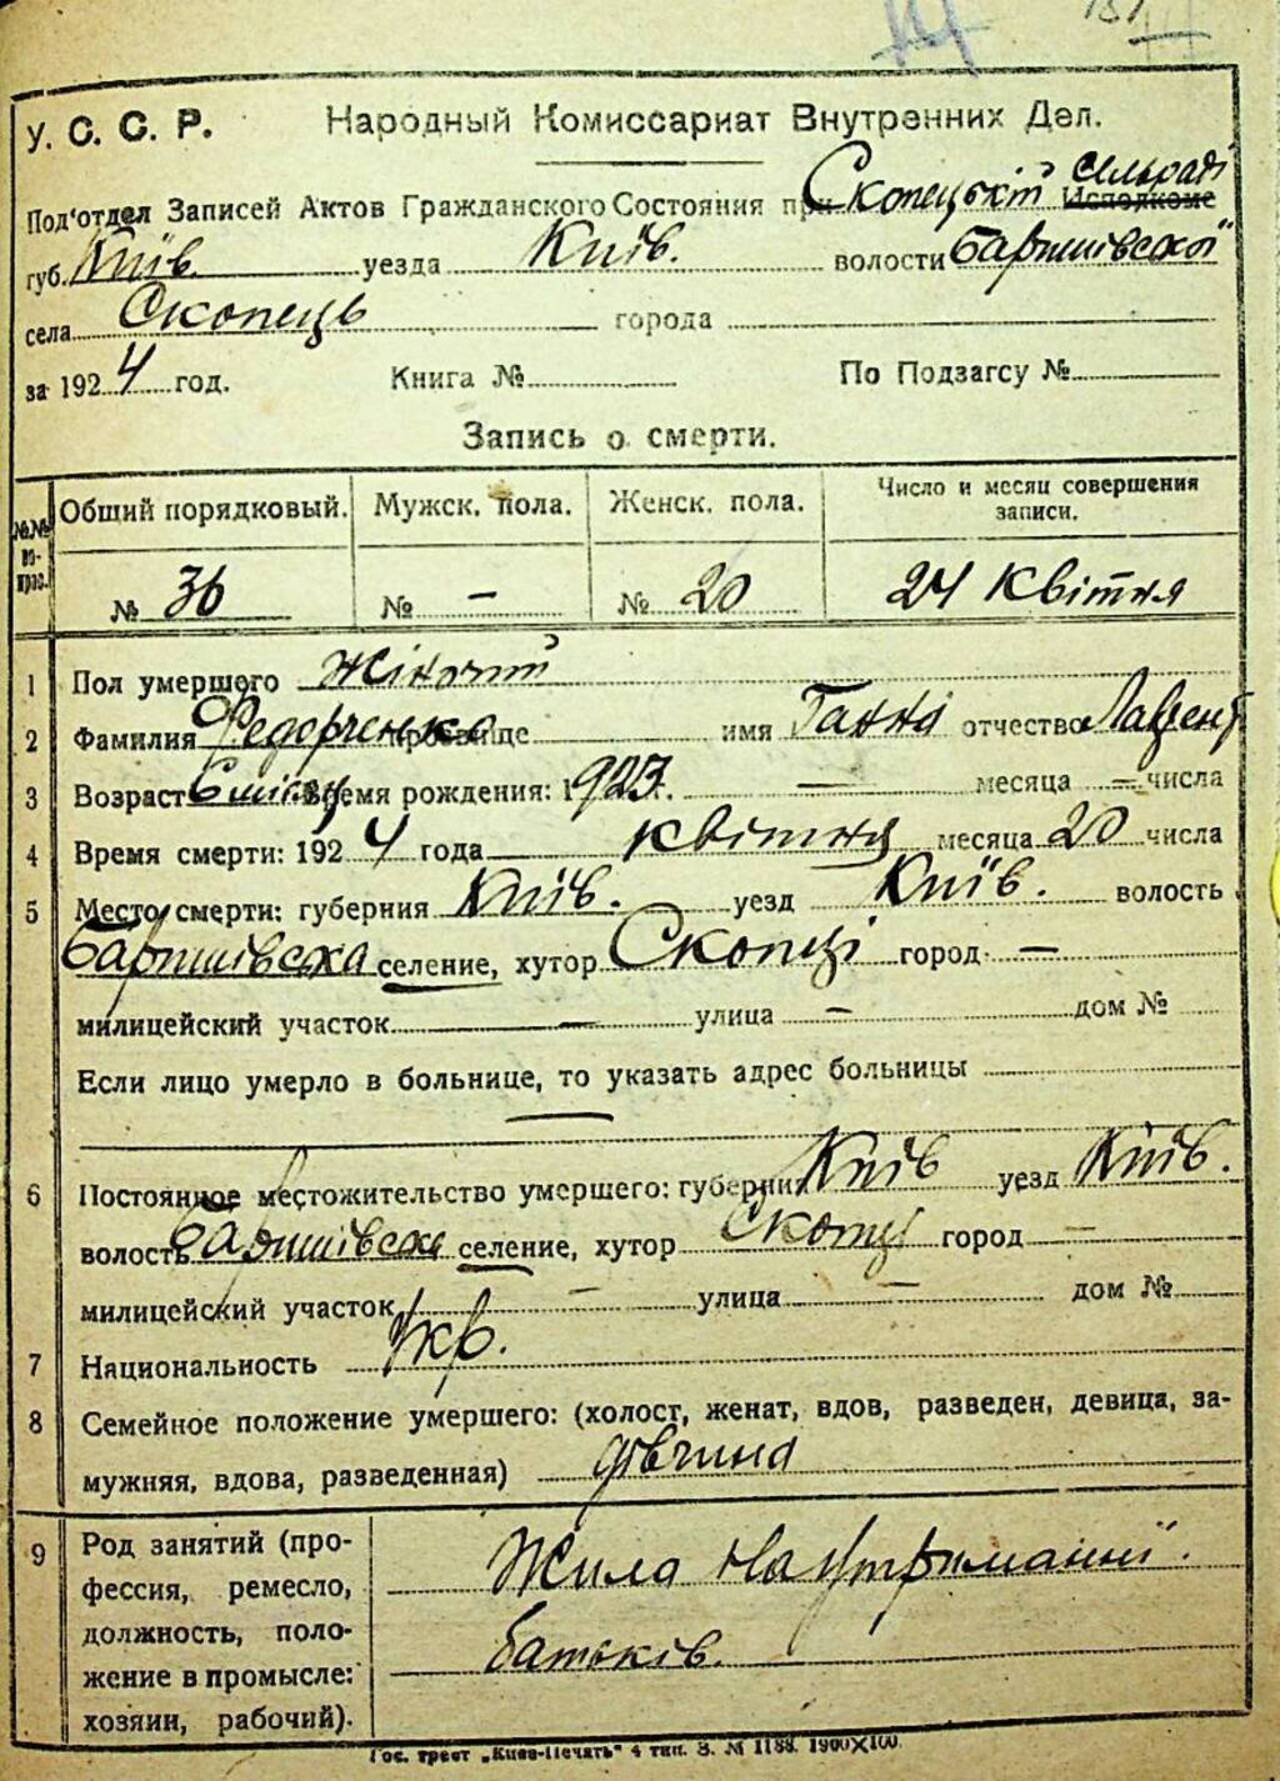 141
У. С. С. Р. Народный Комиссариат Внутренних Дел.
Сільраді
Под'отдел Записей Актов Гражданского Состояния при Скопецькій Исполкоме
губ. Київ. уезда Київ. волости Баришівської
села Скопець города
за 1924 год. Книга № По Подзагсу №
Запись о смерти.
№№ по- прав. Общий порядковый. Мужск. пола. Женск. пола. Число и месяц совершения записи.
№ 36 № – № 20 24 Квітня
1 Пол умершого Жіночий
2 Фамилия Федорченко прозвище имя Ганна отчество Лаврент
3 Возраст 6 місяц Время рождения: 1923 г. — месяца — числа
4 Время смерти: 1924 года квітня месяца 20 числа
5 Место смерти: губерния Київ. уезд Київ. волость
Баришівська селение, хутор Скопці город —
милицейский участок — улица — дом №
Если лицо умерло в больнице, то указать адрес больницы
—
6 Постоянное местожительство умершего: губерния Київ уезд Київ.
волость Баришівська селение, хутор Скопці город —
милицейский участок — улица — дом №
7 Национальность Укр.
8 Семейное положение умершего: (холост, женат, вдов, разведен, девица, за-
мужняя, вдова, разведенная) дівчина
9 Род занятий (про-
фессия, ремесло, Жила на утриманні
должность, поло-
жение в промысле: батьків.
хозяин, рабочий).
Гос. трест „Киев-Печать" 4 тип. З. № 1188. 1900Х100.